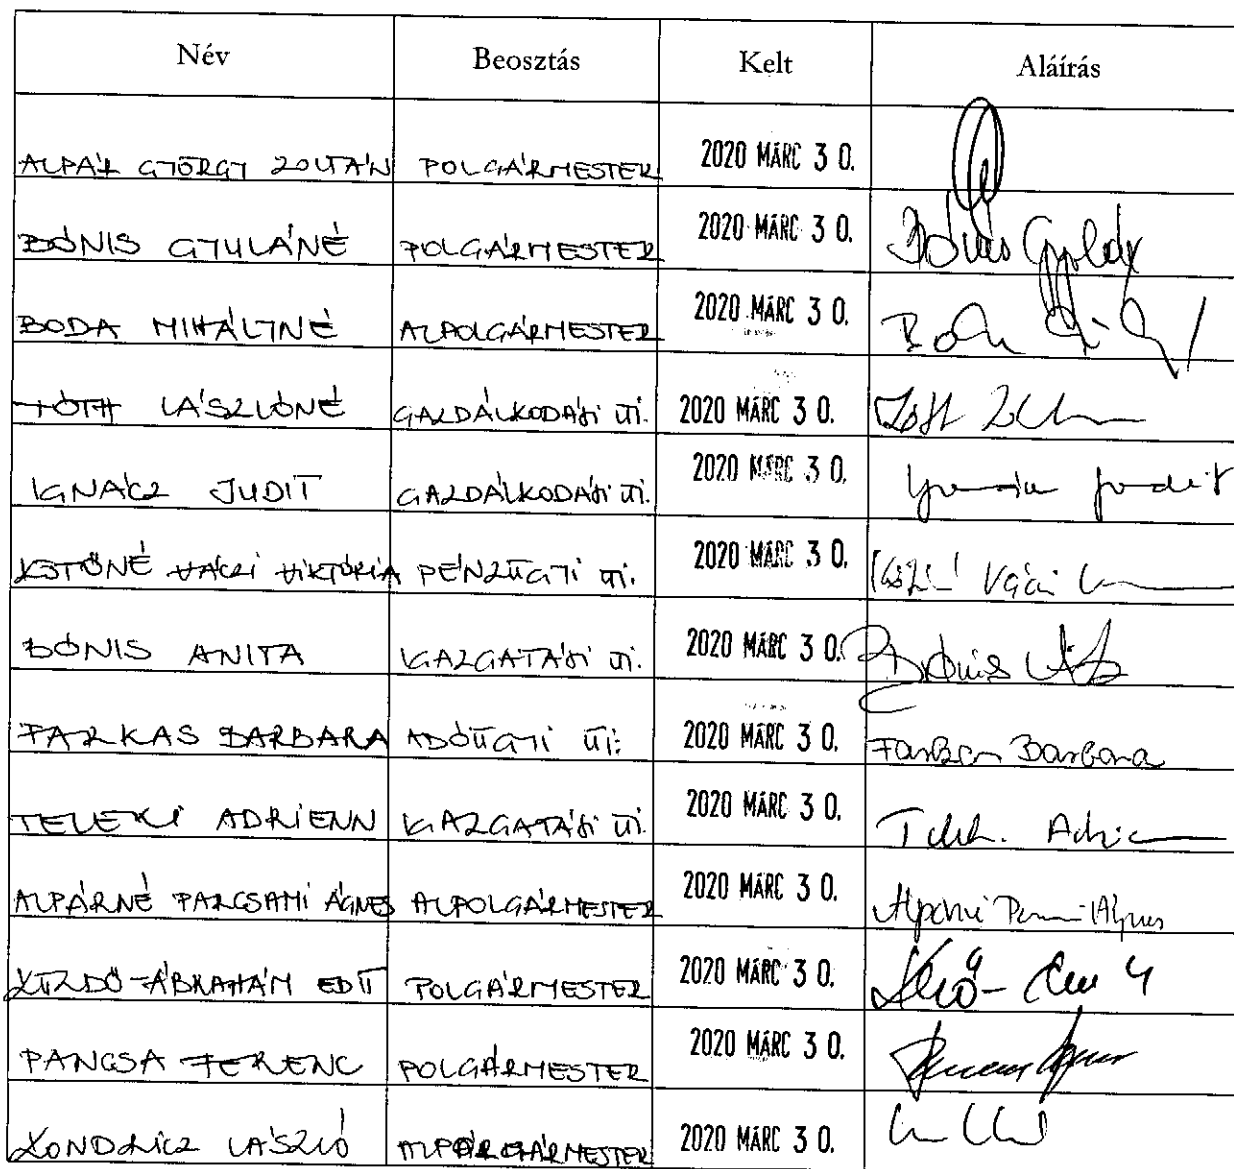 Név Beosztás Kelt Aláírás
ALPÁR GYÖRGY ZOLTÁN POLGÁRMESTER 2020 MÁRC 30.
BÓNIS GYULÁNÉ POLGÁRMESTER 2020 MÁRC 30. Bónis Gyuláné
BODA MIHÁLYNÉ ALPOLGÁRMESTER 2020 MÁRC 30.
TÓTH LÁSZLÓNÉ GAZDÁLKODÁSI ÜI. 2020 MÁRC 30.
IGNÁCZ JUDIT GAZDÁLKODÁSI ÜI. 2020 MÁRC 30. Judit
VÁCZI VIKTÓRIA PÉNZÜGYI ÜI. 2020 MÁRC 30.
BÓNIS ANITA IGAZGATÁSI ÜI. 2020 MÁRC 30. Bónis
FARKAS BARBARA ADÓÜGYI ÜI. 2020 MÁRC 30. Farkas Barbara
TELEKI ADRIENN IGAZGATÁSI ÜI. 2020 MÁRC 30.
ALPÁRNÉ ÁGNES ALPOLGÁRMESTER 2020 MÁRC 30. Alpárné Ágnes
KÜZDŐ-ÁBRAHÁM EDIT POLGÁRMESTER 2020 MÁRC 30.
PANCSA FERENC POLGÁRMESTER 2020 MÁRC 30.
KONDRICZ LÁSZLÓ 2020 MÁRC 30.